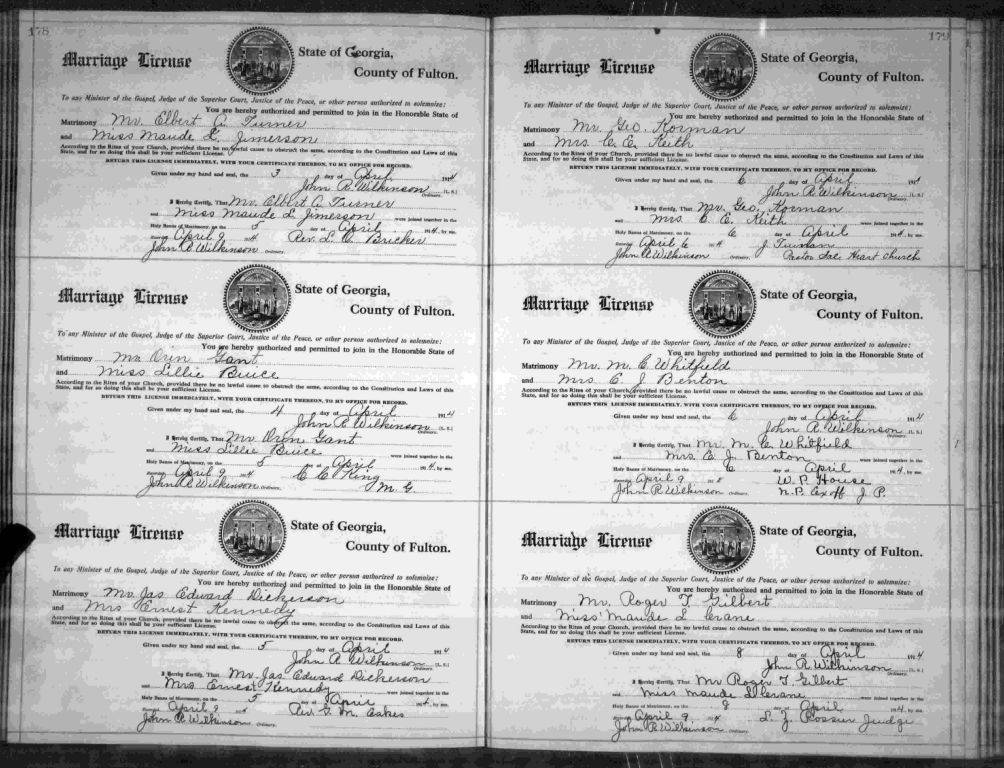 178
Marriage License
State of Georgia,
County of Fulton.
To any Minister of the Gospel, Judge of the Superior Court, Justice of the Peace, or other person authorized to solemnize:
You are hereby authorized and permitted to join in the Honorable State of
Matrimony Mr. Elbert C. Turner
and Miss Maude L. Jimerson
According to the Rites of your Church, provided there be no lawful cause to obstruct the same, according to the Constitution and Laws of this
State, and for so doing this shall be your sufficient License.
RETURN THIS LICENSE IMMEDIATELY, WITH YOUR CERTIFICATE THEREON, TO MY OFFICE FOR RECORD.
Given under my hand and seal, the 3 day of April 1914
John R. Wilkinson (L. S.)
Ordinary.
I Hereby Certify, That Mr. Elbert C Turner
and Miss Maude L Jimerson were joined together in the
Holy Banns of Matrimony, on the 5 day of April 1914, by me.
April 9 1914 Rev. L. E. Bricker
John R Wilkinson Ordinary.
Marriage License
State of Georgia,
County of Fulton.
To any Minister of the Gospel, Judge of the Superior Court, Justice of the Peace, or other person authorized to solemnize:
You are hereby authorized and permitted to join in the Honorable State of
Matrimony Mr. Oren Gant
and Miss Lillie Bruce
According to the Rites of your Church, provided there be no lawful cause to obstruct the same, according to the Constitution and Laws of this
State, and for so doing this shall be your sufficient License.
RETURN THIS LICENSE IMMEDIATELY, WITH YOUR CERTIFICATE THEREON, TO MY OFFICE FOR RECORD.
Given under my hand and seal, the 4 day of April 1914
John R. Wilkinson (L. S.)
Ordinary.
I Hereby Certify, That Mr. Oren Gant
and Miss Lillie Bruce were joined together in the
Holy Banns of Matrimony, on the 5 day of April 1914, by me.
April 9 1914 C C King
John R Wilkinson Ordinary. M. G.
Marriage License
State of Georgia,
County of Fulton.
To any Minister of the Gospel, Judge of the Superior Court, Justice of the Peace, or other person authorized to solemnize:
You are hereby authorized and permitted to join in the Honorable State of
Matrimony Mr. Jas Edward Dickerson
and Mrs Ernest Kennedy
According to the Rites of your Church, provided there be no lawful cause to obstruct the same, according to the Constitution and Laws of this
State, and for so doing this shall be your sufficient License.
RETURN THIS LICENSE IMMEDIATELY, WITH YOUR CERTIFICATE THEREON, TO MY OFFICE FOR RECORD.
Given under my hand and seal, the 5 day of April 1914
John R. Wilkinson (L. S.)
Ordinary.
I Hereby Certify, That Mr. Jas Edward Dickerson
and Mrs Ernest Kennedy were joined together in the
Holy Banns of Matrimony, on the 5 day of April 1914, by me.
April 9 Rev. G. M.
John R Wilkinson Ordinary.
179
Marriage License
State of Georgia,
County of Fulton.
To any Minister of the Gospel, Judge of the Superior Court, Justice of the Peace, or other person authorized to solemnize:
You are hereby authorized and permitted to join in the Honorable State of
Matrimony Mr. Geo. Korman
and Mrs. C. E. Keith
According to the Rites of your Church, provided there be no lawful cause to obstruct the same, according to the Constitution and Laws of this
State, and for so doing this shall be your sufficient License.
RETURN THIS LICENSE IMMEDIATELY, WITH YOUR CERTIFICATE THEREON, TO MY OFFICE FOR RECORD.
Given under my hand and seal, the 6 day of April 1914
John R. Wilkinson (L. S.)
Ordinary.
I Hereby Certify, That Mr. Geo. Korman
and Mrs. C. E. Keith were joined together in the
Holy Banns of Matrimony, on the 6 day of April 1914, by me.
April 6 1914 J.
John R Wilkinson Ordinary. Pastor Sac Heart Church
Marriage License
State of Georgia,
County of Fulton.
To any Minister of the Gospel, Judge of the Superior Court, Justice of the Peace, or other person authorized to solemnize:
You are hereby authorized and permitted to join in the Honorable State of
Matrimony Mr. M. E. Whitfield
and Mrs E J Benton
According to the Rites of your Church, provided there be no lawful cause to obstruct the same, according to the Constitution and Laws of this
State, and for so doing this shall be your sufficient License.
RETURN THIS LICENSE IMMEDIATELY, WITH YOUR CERTIFICATE THEREON, TO MY OFFICE FOR RECORD.
Given under my hand and seal, the 6 day of April 1914
John R. Wilkinson (L. S.)
Ordinary.
I Hereby Certify, That Mr. M. E. Whitfield
and Mrs. E. J. Benton were joined together in the
Holy Banns of Matrimony, on the 6 day of April 1914, by me.
April 9 W. P. House
John R. Wilkinson Ordinary. N. P. Exoff J P.
Marriage License
State of Georgia,
County of Fulton.
To any Minister of the Gospel, Judge of the Superior Court, Justice of the Peace, or other person authorized to solemnize:
You are hereby authorized and permitted to join in the Honorable State of
Matrimony Mr. Roger T. Gilbert
and Miss Maude L Crane
According to the Rites of your Church, provided there be no lawful cause to obstruct the same, according to the Constitution and Laws of this
State, and for so doing this shall be your sufficient License.
RETURN THIS LICENSE IMMEDIATELY, WITH YOUR CERTIFICATE THEREON, TO MY OFFICE FOR RECORD.
Given under my hand and seal, the 8 day of April 1914
John R. Wilkinson (L. S.)
Ordinary.
I Hereby Certify, That Mr Roger T. Gilbert
and Miss Maude L Crane were joined together in the
Holy Banns of Matrimony, on the 9 day of April 1914, by me.
April 9 1914 L. Z. Rosser Judge
John R. Wilkinson Ordinary.